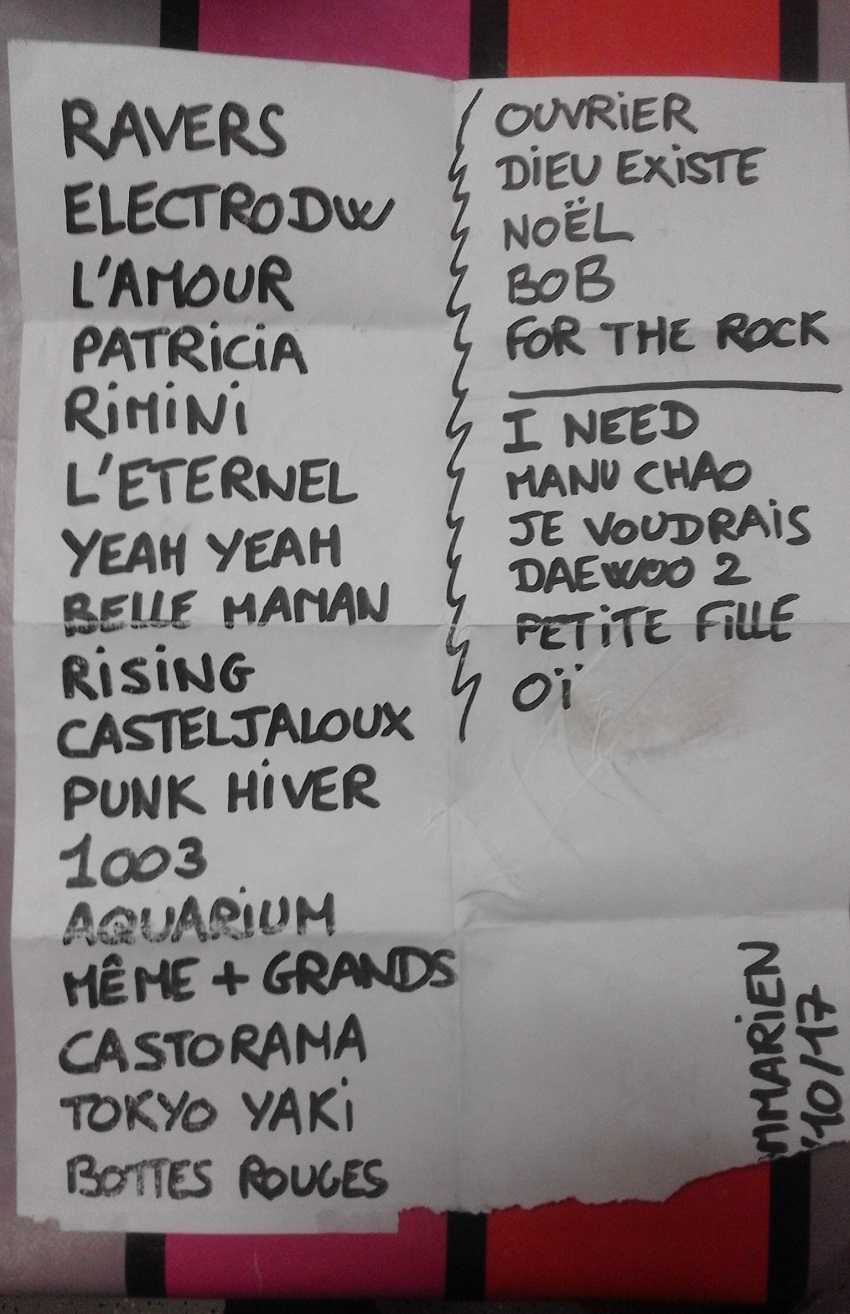 RAVERS
ELECTRODW
L'AMOUR
PATRiCiA
RiMiNi
L'ETERNEL
YEAH YEAH
BELLE MAMAN
RiSiNG
CASTELJALOUX
PUNK HiVER
1003
AQUARiUM
MÊME + GRANDS
CASTORAMA
TOKYO YAKi
BOTTES ROUGES
OUVRiER
DiEU EXiSTE
NOËL
BOB
FOR THE ROCK
I NEED
MANU CHAO
JE VOUDRAiS
DAEWOO 2
PETiTE FiLLE
Oï
MMARiEN
10/17